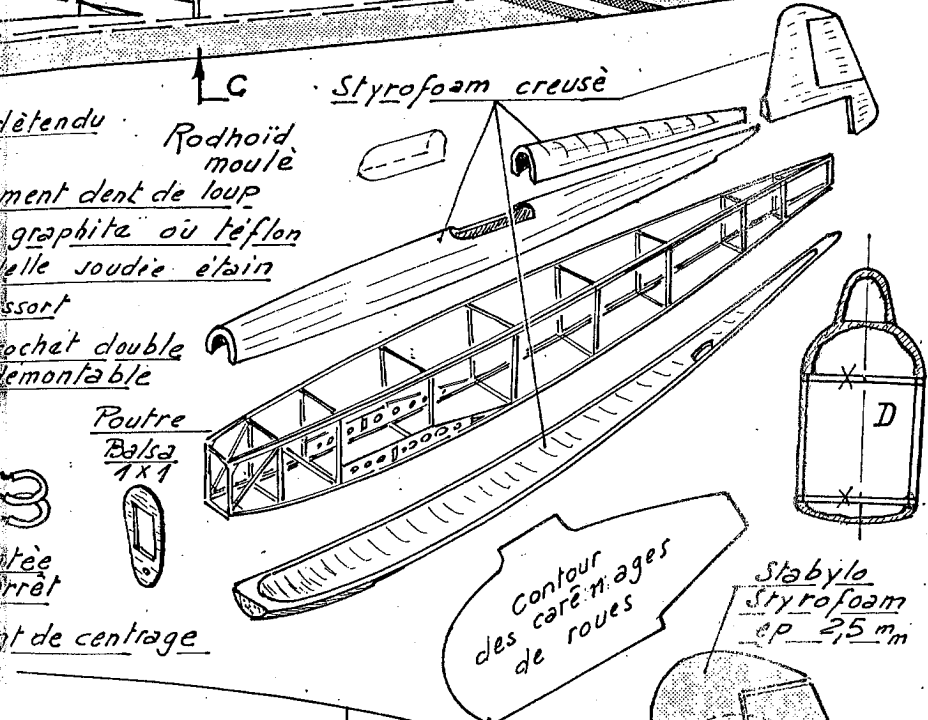 C
Styrofoam creusè
détendu
Rodhoïd
moulè
ment dent de loup
graphite où téflon
elle soudée étain
ssort
ochet double
démontable
Poutre
Balsa
1x1
D
tèe
rrêt
nt de centrage
Contour
des carénages
de roues
Stabylo
Styrofoam
ep 2,5 mm